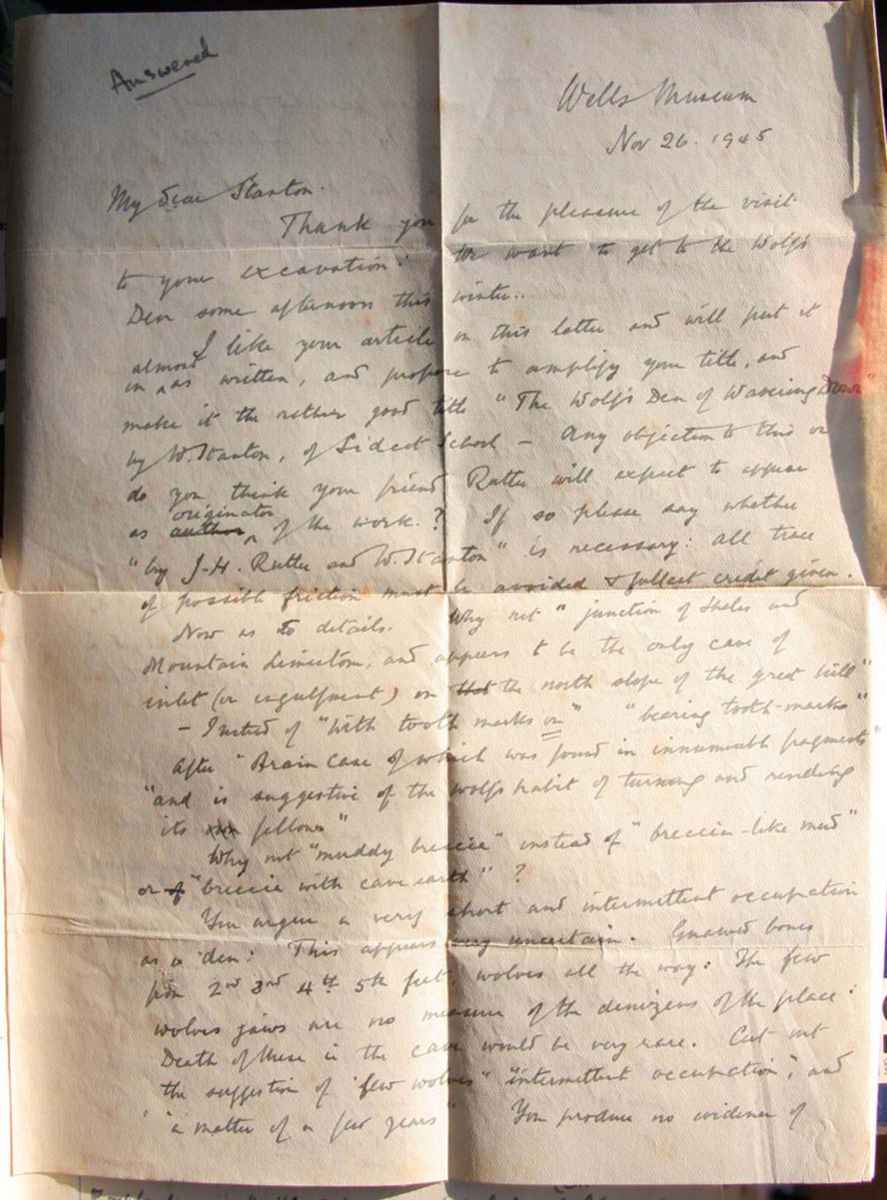 Answered
Wells Museum
Nov 26. 1945
My dear Stanton.
Thank you for the pleasure of the visit
to your excavation: We want to get to the Wolf's
Den some afternoon this winter..
I like your article on this latter and will put it
in almost as written, and propose to amplify your title, and
make it the rather good title "The Wolf's Den of Wavering Down"
by W. Stanton, of Sidcot School – Any objection to this or
do you think your friend Rutter will expect to appear
as author originator of the work.? If so please say whether
"by J.H. Rutter and W. Stanton" is necessary: all trace
of possible friction must be avoided & fullest credit given.
Now as to details. Why not "junction of Shales and
Mountain Limestone, and appears to be the only cave of
inlet (or engulfment) on that the north slope of the great hill"
– Instead of "with tooth marks on" "bearing tooth-marks"
After "Brain Case of which was found in innumerable fragments
"and is suggestive of the wolf's habit of turning and rending
its fellows"
Why not "muddy breccia" instead of "breccia-like mud"
or of "breccia with cave earth" ?
You argue a very short and intermittent occupation
as a den: This appears very uncertain. Gnawed bones
from 2nd 3rd 4th 5th feet, wolves all the way: The few
wolves jaws are no measure of the denizens of the place:
Death of these in the cave would be very rare. Cut out
the suggestion of "few wolves" "intermittent occupation", and
"a matter of a few years" You produce no evidence of